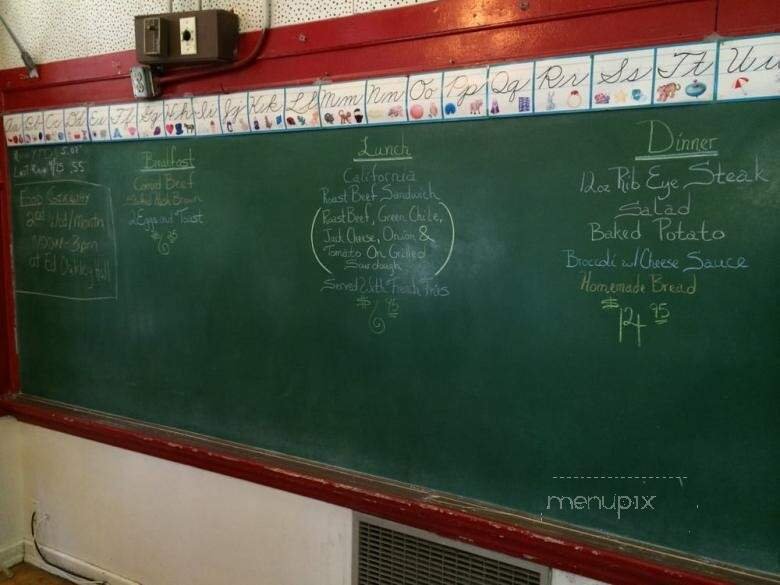 Aa Bb Cc Dd Ee Ff Gg Hh Ii Jj Kk Ll Mm Nn Oo Pp Qq Rr Ss Tt Uu
5.05"
Last Rain 4/25 .55
Food Giveaway
2nd Wed/Month
Noon-3pm
at Ed Oakley Hall
Breakfast
Corned Beef
Hash Brown
2 Eggs and Toast
$6.95
Lunch
California
Roast Beef Sandwich
(Roast Beef, Green Chile,
Jack Cheese, Onion &
Tomato On Grilled
Sourdough)
Served With French Fries
$6.95
Dinner
12oz Rib Eye Steak
Salad
Baked Potato
Broccoli w/Cheese Sauce
Homemade Bread
$14.95
menupix